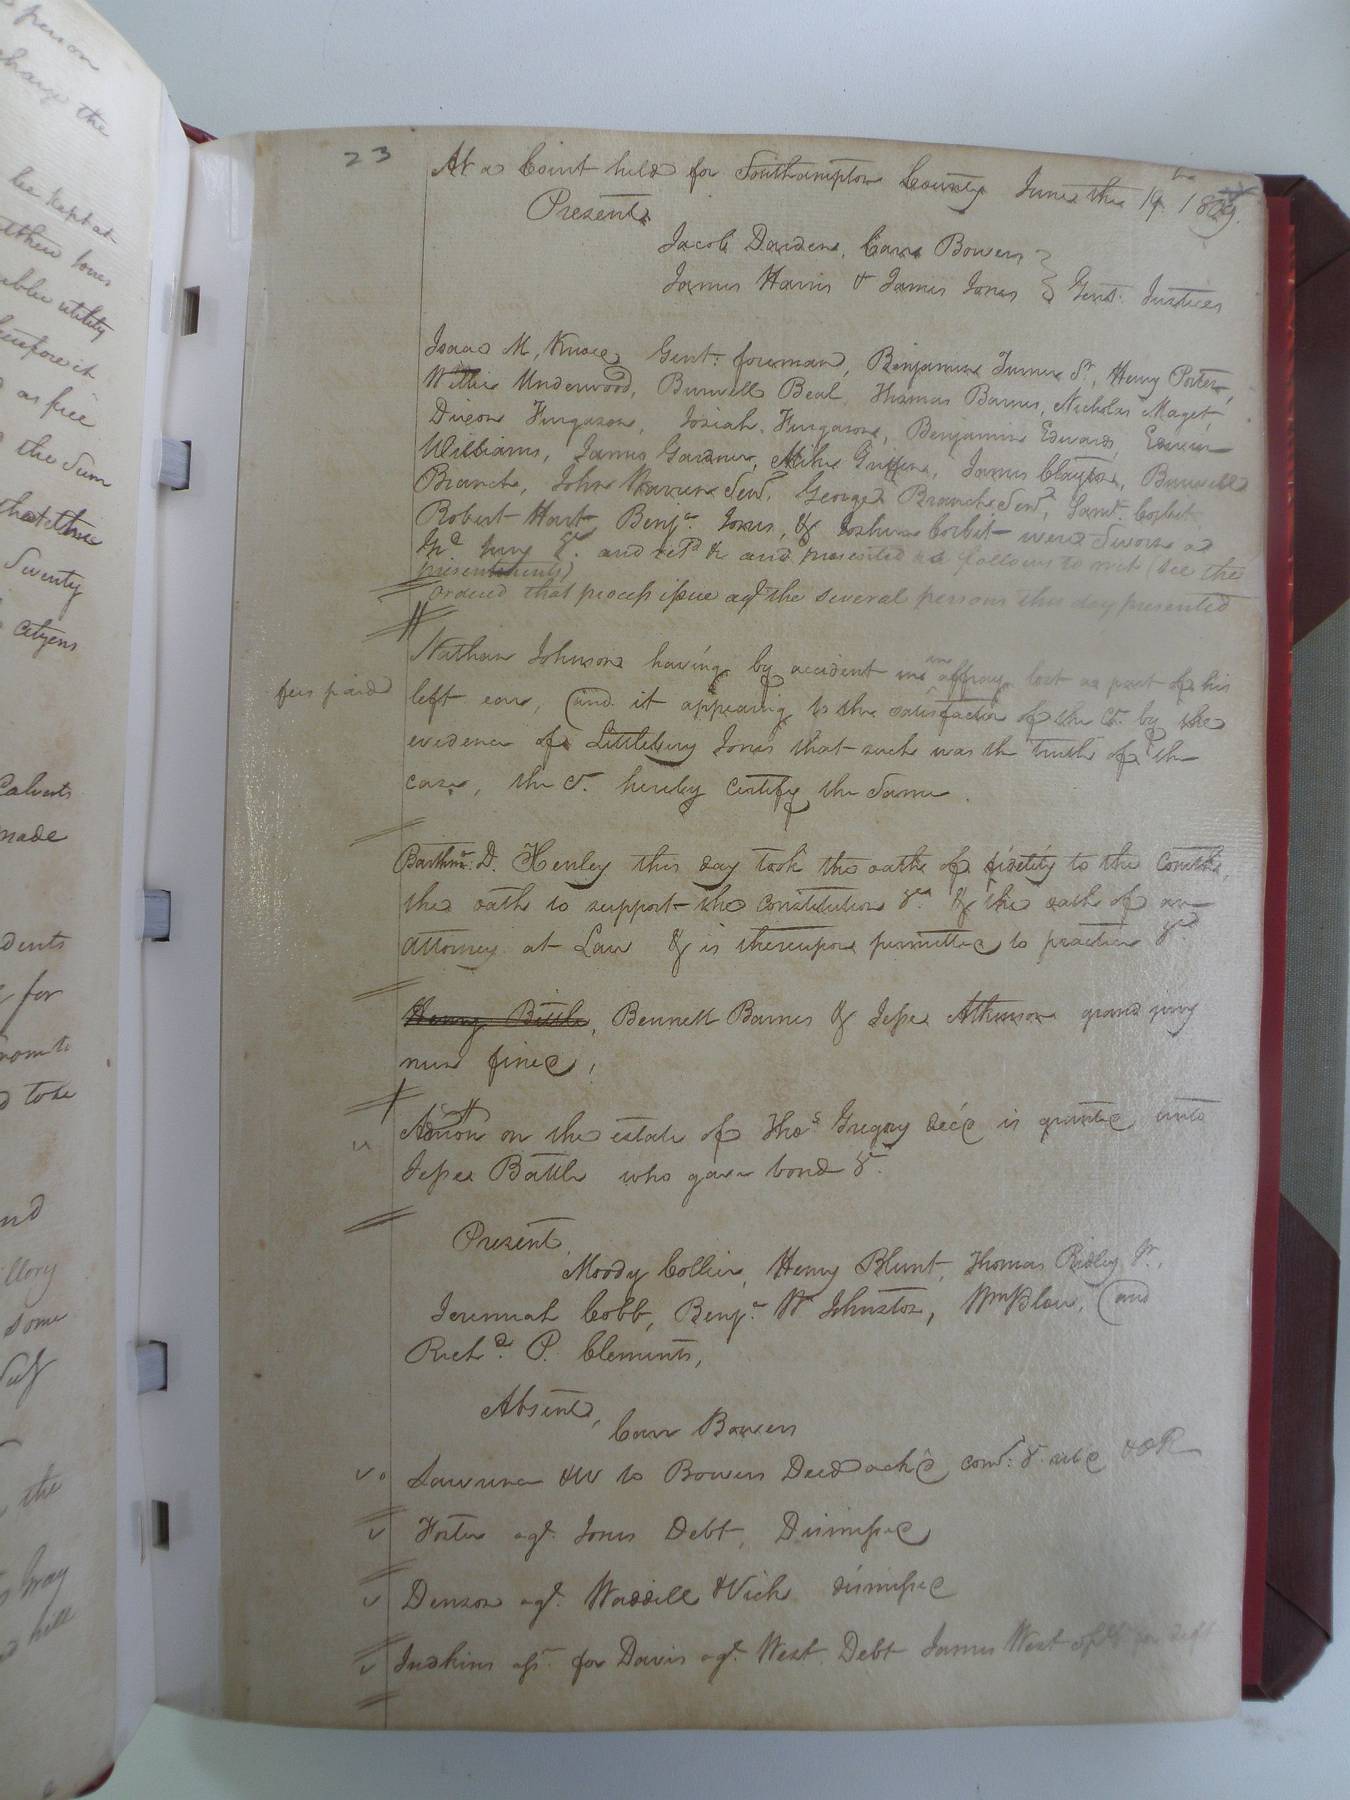 23
At a Court held for Southampton County June the 19th 1809.
Present
Jacob Darden, Carr Bowers
James Harris & James Jones } Gent. Justices
Isaac M, Gent: foreman, Benjamin Turner Sr, Henry Porter,
Willie Underwood, Burwell Beal, Thomas Barnes, Nicholas Maget,
Dixon Furgason, Josiah Furgason, Benjamin Edwards, Edwin
Williams, James Gardner, Miles Griffin, James Clayton, Burwell
Branch, John Senr, George Branch Senr, Saml. Corbit
Robert Hart, Benja. Jones, & Joshua Corbit were sworn as
Gd Jury &c. and retd & and presented as follows to wit (see the
presentments)
ordered that process issue agt the several persons this day presented
Nathan Johnson having by accident in an affray lost a part of his
fees paid
left ear, and it appearing to the satisfaction of the Ct. by the
evidence of Littlebury Jones that such was the truth of the
case, the Ct. hereby certify the same.
D. Henley this day took the oath of fidelity to the Comlth,
the oath to support the Constitution &ca & the oath of an
attorney at Law & is thereupon permitted to practice &c
Henry Battle, Bennett Barnes & Jesse Atkinson grand jury
men fined,
Admon on the estate of Thos Gregory decd is granted unto
Jesse Battle who gave bond &c.
Present,
Moody Collier, Henry Blunt, Thomas Ridley Jr.,
Jeremiah Cobb, Benja. W Johnston, Wm Blow, and
Richd. P. Clements,
Absent,
Carr Bowers
Lawrence &W to Bowers Deed ackd & OR
Foster agt. Jones Debt, Dismissed
Denson agt. Waddill & Vick dismissed
Judkins ass. for Davis agt. West Debt James West for deft